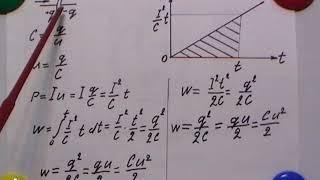 +q -q
C = q/u
u = q/C
P = Iu = I q/C = I²/C t
W = ∫₀ᵗ I²/C t dt = I²/C · t²/2 = q²/2C
W = q²/2C = qu/2 = Cu²/2
I²/C t
t
t
W = I²t²/2C = q²/2C
W = q²/2C = qu/2 = Cu²/2